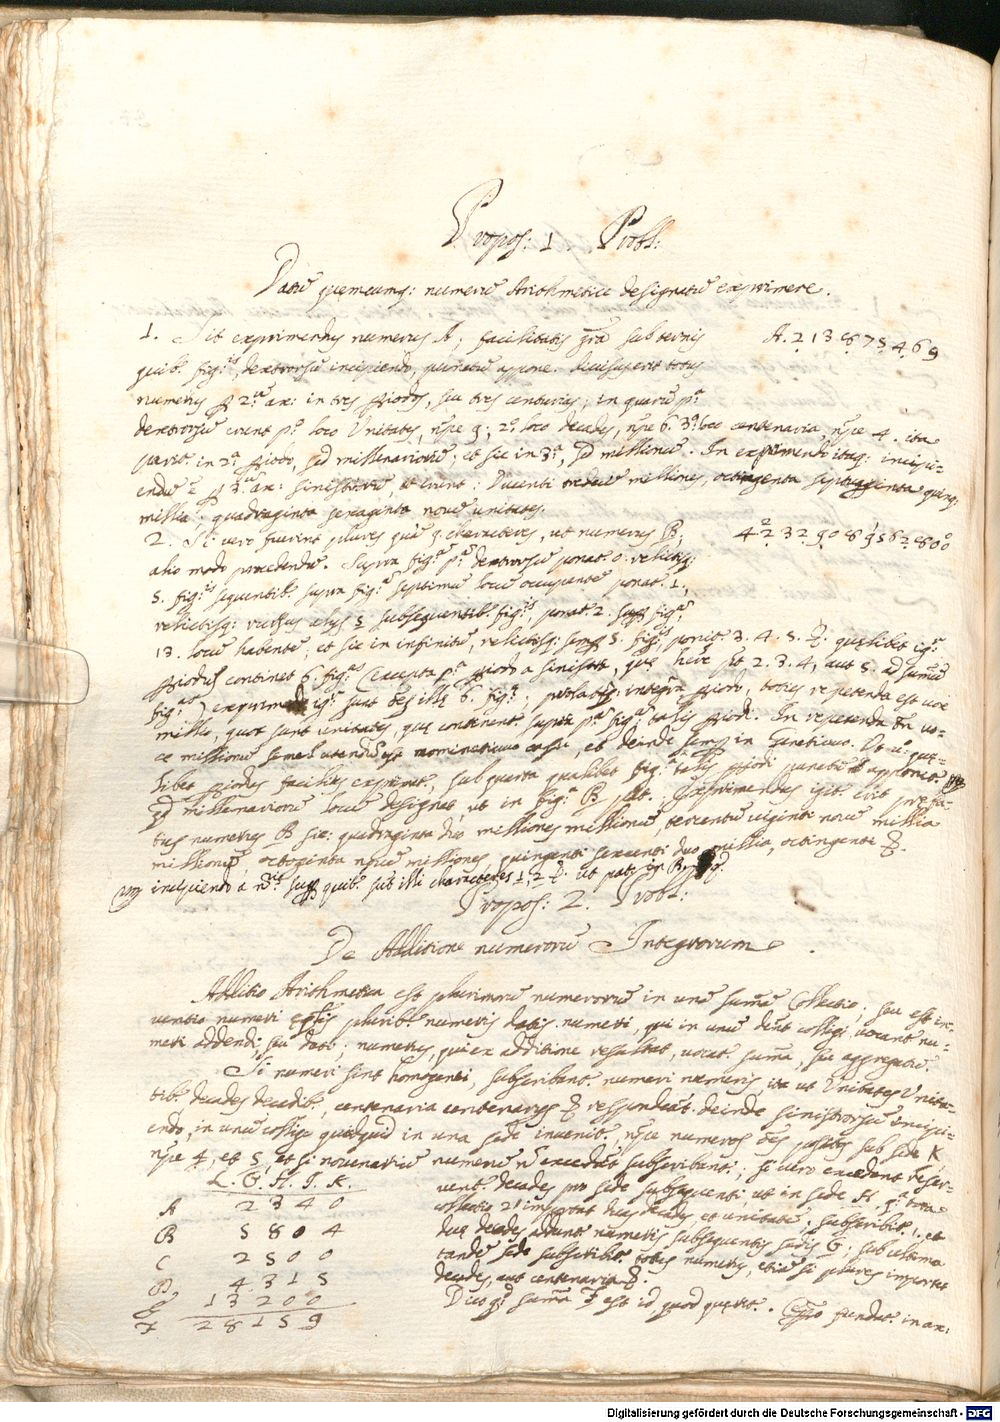 Propos: 1. Probl:
Datū quemcumq; numerū Arithmetice designatū exprimere.
1. Sit exprimendus numerus A, facilitatis grā sub ternis
A. 2 1 3 8 7 5 4 6 9
quib. fig:is, dextrorsū incipiendo, punctū appone. divisus erit totus
numerus 2.ae ax: in tres piodos, seu tres centurias; in quarū pa
dextrorsū erunt po loco Unitates, npe 9; 2o loco decades, npe 6. 3o loco centenaria, npe 4. ita
pariter in 2a piodo, sed millenariorū; et sic in 3a, sed millionū. In exprimendo itaq; incipi-
endū ē 3.ae ax: sinistrorsū, et erunt: Ducenti tredecī milliones, octingenta septuaginta quinq;
millia: quadraginta sexaginta novē unitates.
2. Si vero fuerint plures quā 9. characteres, ut numerus B,
4 2 3 2 9 0 8 9 5 6 2 8 0 0
alio modo procedendū. Supra fig:ā pā dextrorsū ponat 0. relictis;
5. fig:is sequentib. supra fig:ā septimū locū occupantē ponat. 1,
relictisq; rursus alijs 5 subsequentib. fig:is, ponat 2. supra fig:ā
13. locū habentē, et sic in infinitū, relictisq; semp 5. fig:is ponit. 3. 4. 5. &. quaelibet ig:r
piodus continet 6. fig:as (excepta pa piodo a sinistris, quae habere pt 2. 3. 4, aut 5. ad sumū
fig:as) ig:r sunt illae 6. fig:ae; integra piodo, toties repetenda est vox
millio, quot sunt unitates, quas continent supra pā fig:ā talis piodi. In repetenda vo-
ce millionū semel utendū est nominativo casu, et deinde semp in Genitivo. Ut quae-
libet piodus facilius exprimat., sub quarta qualibet fig:a talis piodi punctū apponat.
qd millenariorū locū designet, ut in fig:a B patet. Exprimendus igit. erit praefa-
tus numerus B sic: quadraginta duo milliones millionū, tercentū viginti novē millia
millionū, octoginta novē milliones, quingenti sexcenti duo millia, octingenti &.
incipiendo a supra quib. sūt illi characteres 1, 2 &. ut patet in B.
Propos: 2. Probl:
De Additione numerorū Integrorum.
Additio Arithmetica est plurimorū numerorū in unā sumā Collectio; seu est in-
ventio numeri pluribus numeris datis. numeri, qui in unū dent colligi vocant nu-
meri addendi, seu dati; numerus, qui ex additione resultat, vocat. suma, seu aggregatū.
Si numeri sint homogenei, subscribant. numeri numeris, ita ut Unitates Unita-
tib. decades decadib., centenaria centenarijs & respondeāt. deinde sinistrorsū incipi-
endo, in unū collige quidquid in una sede invenit. npe numeros oēs positos sub sede K
npe 4, et 5, et si novenariū numerū ñ excedūt subscribant.; si vero excedent reser-
L. G. H. I. K.
vent. decades pro sede subsequenti, ut in sede H,
A 2 3 4 0
collectio 21 important duas decades, et unitatē; subscribit. 1. et
B 5 8 0 4
duae decades addunt. numeris subsequentis sedis G; sub ultima
C 2 5 0 0
tandē sede subscribit. totus numerus, etiā si plures importet
D 4 3 1 5
decades, aut centenaria &.
E 1 3 2 0 0
Dico qd suma F est id quod quaerit. fundat. in ax:
F 2 8 1 5 9
Digitalisierung gefördert durch die Deutsche Forschungsgemeinschaft - DFG